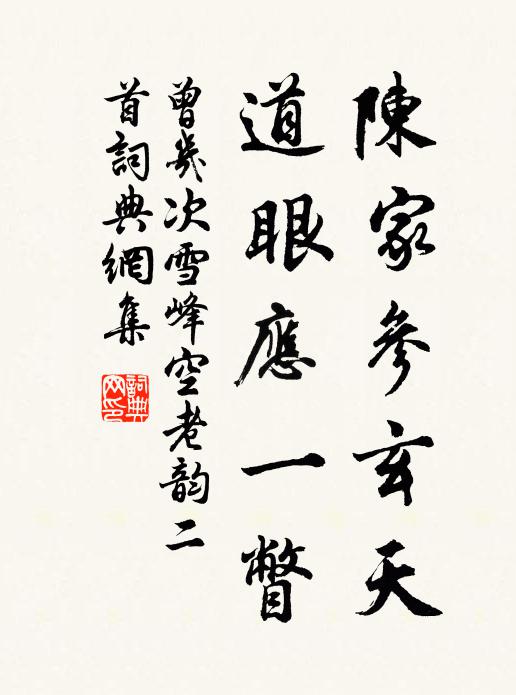 陳家參玄天
道眼應一瞥
曾幾次雪峰空老韵二
首詞典網集
詞典
网印